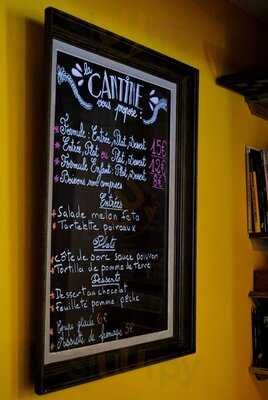 la
CANTINE
vous propose :
Formule : Entrée, Plat, Dessert 15€
Entrée, Plat ou Plat, Dessert 13€
Formule Enfant : Plat, Dessert
Boissons non comprises
Entrées
Salade melon feta
Tartelette poivraux
Plats
Côte de porc sauce poivron
Tortilla de pomme de Terre
Desserts
Dessert au chocolat
Feuilleté pomme pêche
Coupe glacée 6€
Assiette de fromage 5€